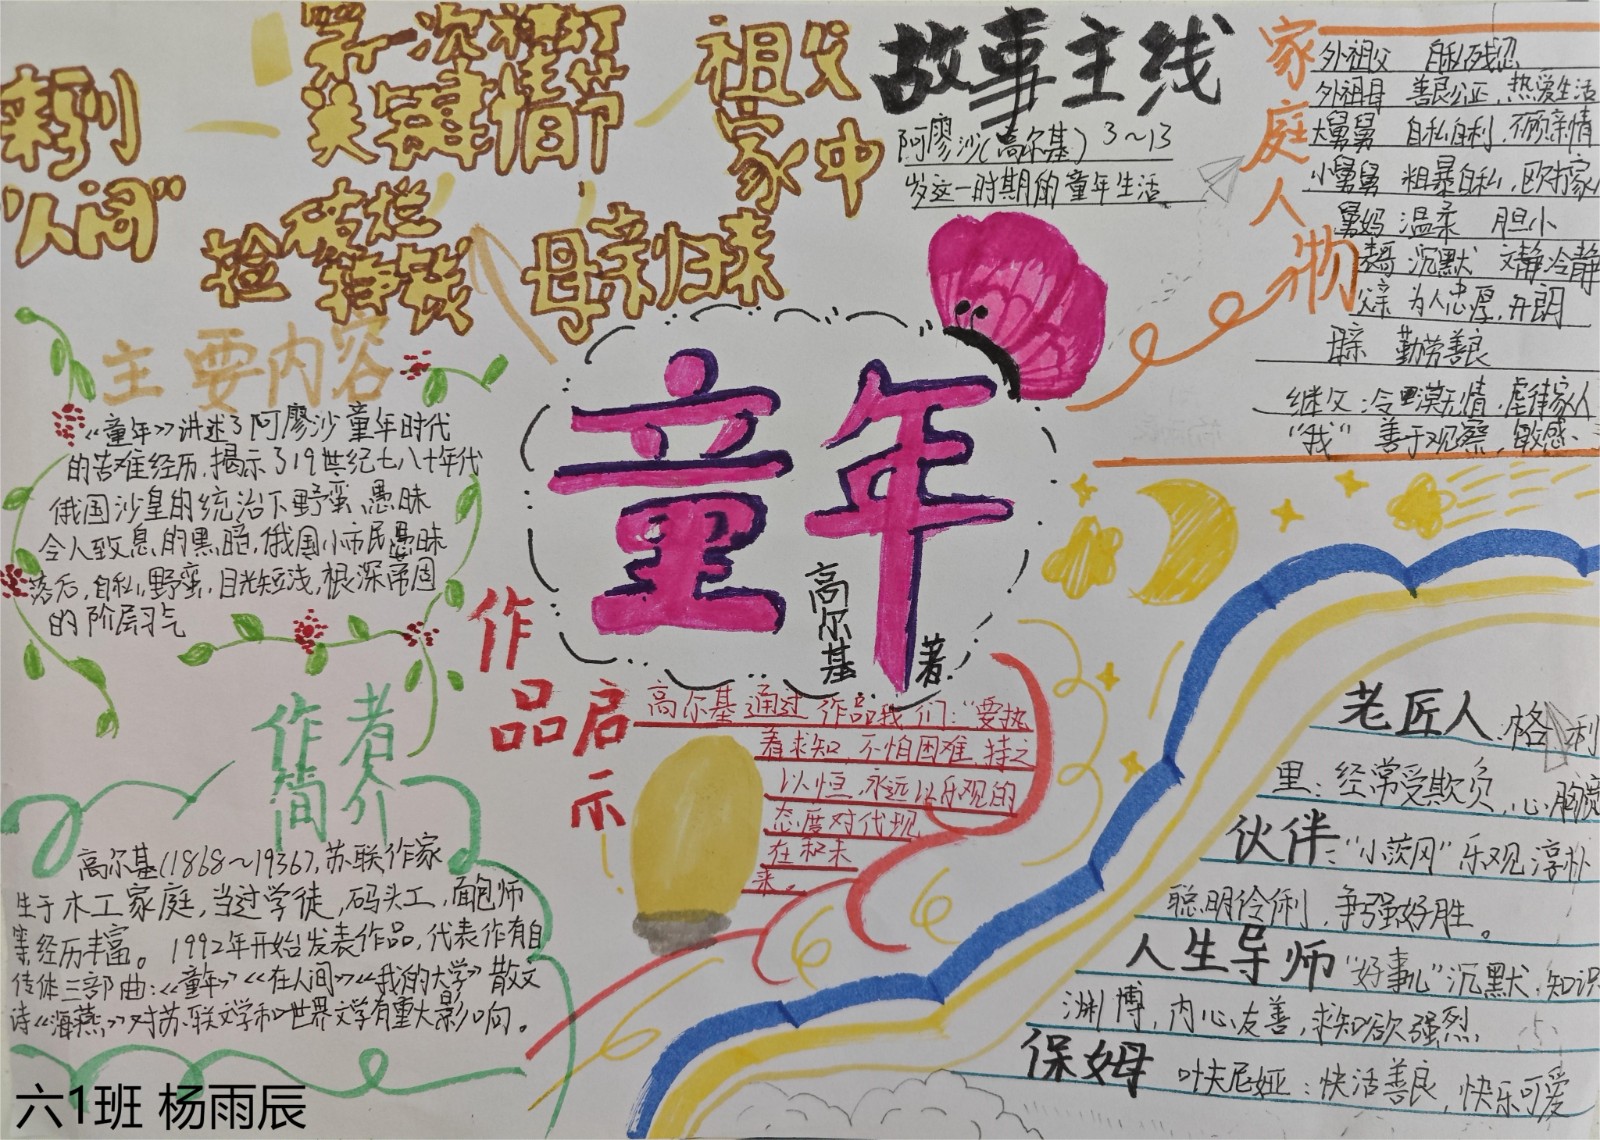 来到
“人间”
第一次挨打
关键情节
祖父
家中
捡破烂
挣钱
母亲归来
故事主线
阿廖沙(高尔基) 3～13
岁这一时期的童年生活
家庭人物
外祖父 自私残忍
外祖母 善良公正,热爱生活
大舅舅 自私自利,不顾亲情
小舅舅 粗暴自私,欧打家人
舅妈 温柔 胆小
表哥 沉默 文静冷静
父亲 为人忠厚,开朗
母亲 勤劳善良
继父:冷漠无情,虐待家人
“我” 善于观察,敏感、
主要内容
《童年》讲述了阿廖沙童年时代
的苦难经历,揭示了19世纪七八十年代
俄国沙皇的统治下野蛮、愚昧
令人致息的黑暗,俄国小市民愚昧
落后,自私,野蛮,目光短浅,根深蒂固
的阶层习气
童年
高尔基
著
作者
简介
高尔基(1868～1936),苏联作家
生于木工家庭,当过学徒,码头工,面包师
等经历丰富。1992年开始发表作品,代表作有自
传体三部曲:《童年》《在人间》《我的大学》散文
诗《海燕》对苏联文学和世界文学有重大影响。
作品启示
高尔基通过作品我们:“要执
着求知,不怕困难,持之
以恒,永远以乐观的
态度对代现
在和未
来。
老匠人:格利
里:经常受欺负,心胸宽
伙伴:“小茨冈”乐观淳朴
聪明伶俐,争强好胜。
人生导师“好事儿”沉默,知识
渊博,内心友善,求知欲强烈,
保姆 叶夫尼娅:快活善良,快乐可爱
六1班 杨雨辰